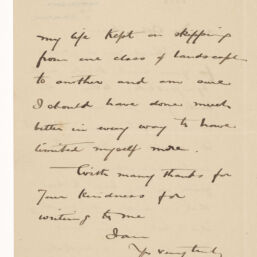 my life kept on skipping
from one class of landscape
to another and am sure
I should have done much
better in every way to have
limited myself more.
With many thanks for
your kindness for
writing to me
I am
Yrs very truly